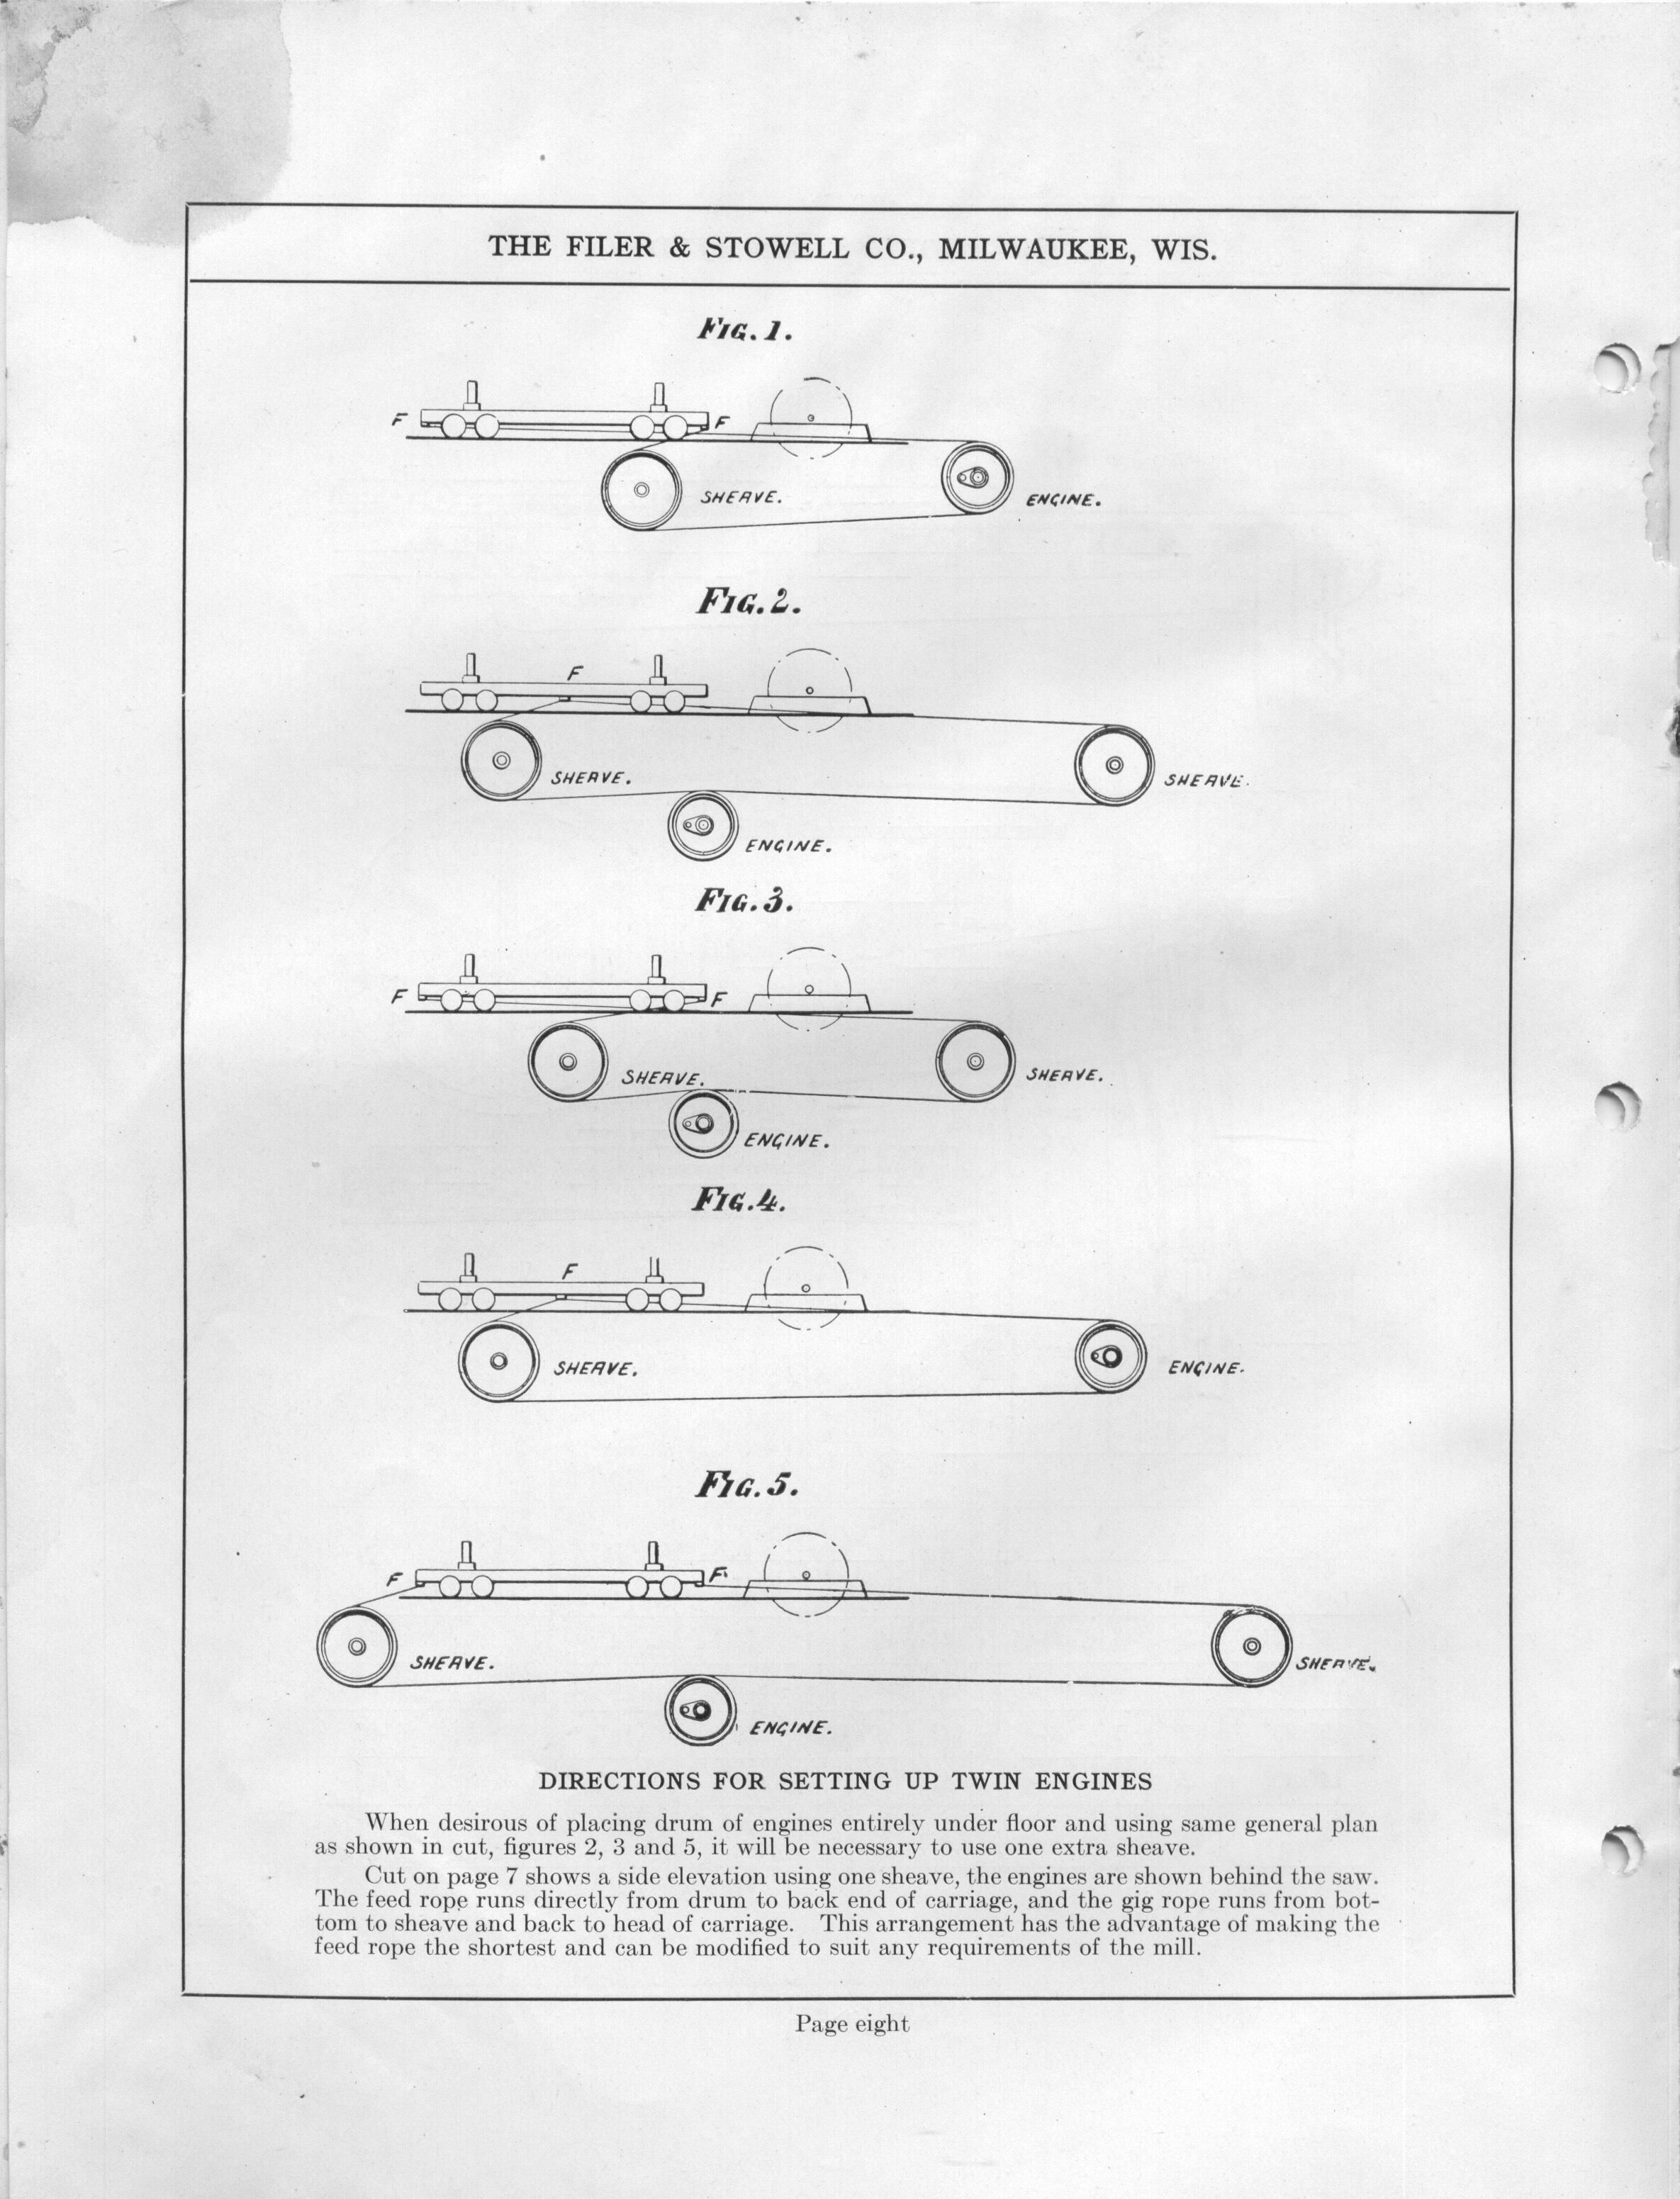 THE FILER & STOWELL CO., MILWAUKEE, WIS.
FIG. 1.
F
F
SHEAVE.
ENGINE.
FIG. 2.
F
SHEAVE.
SHEAVE.
ENGINE.
FIG. 3.
F
F
SHEAVE.
SHEAVE.
ENGINE.
FIG. 4.
F
SHEAVE.
ENGINE.
FIG. 5.
F
F
SHEAVE.
SHEAVE.
ENGINE.
DIRECTIONS FOR SETTING UP TWIN ENGINES
When desirous of placing drum of engines entirely under floor and using same general plan
as shown in cut, figures 2, 3 and 5, it will be necessary to use one extra sheave.
Cut on page 7 shows a side elevation using one sheave, the engines are shown behind the saw.
The feed rope runs directly from drum to back end of carriage, and the gig rope runs from bot-
tom to sheave and back to head of carriage. This arrangement has the advantage of making the
feed rope the shortest and can be modified to suit any requirements of the mill.
Page eight